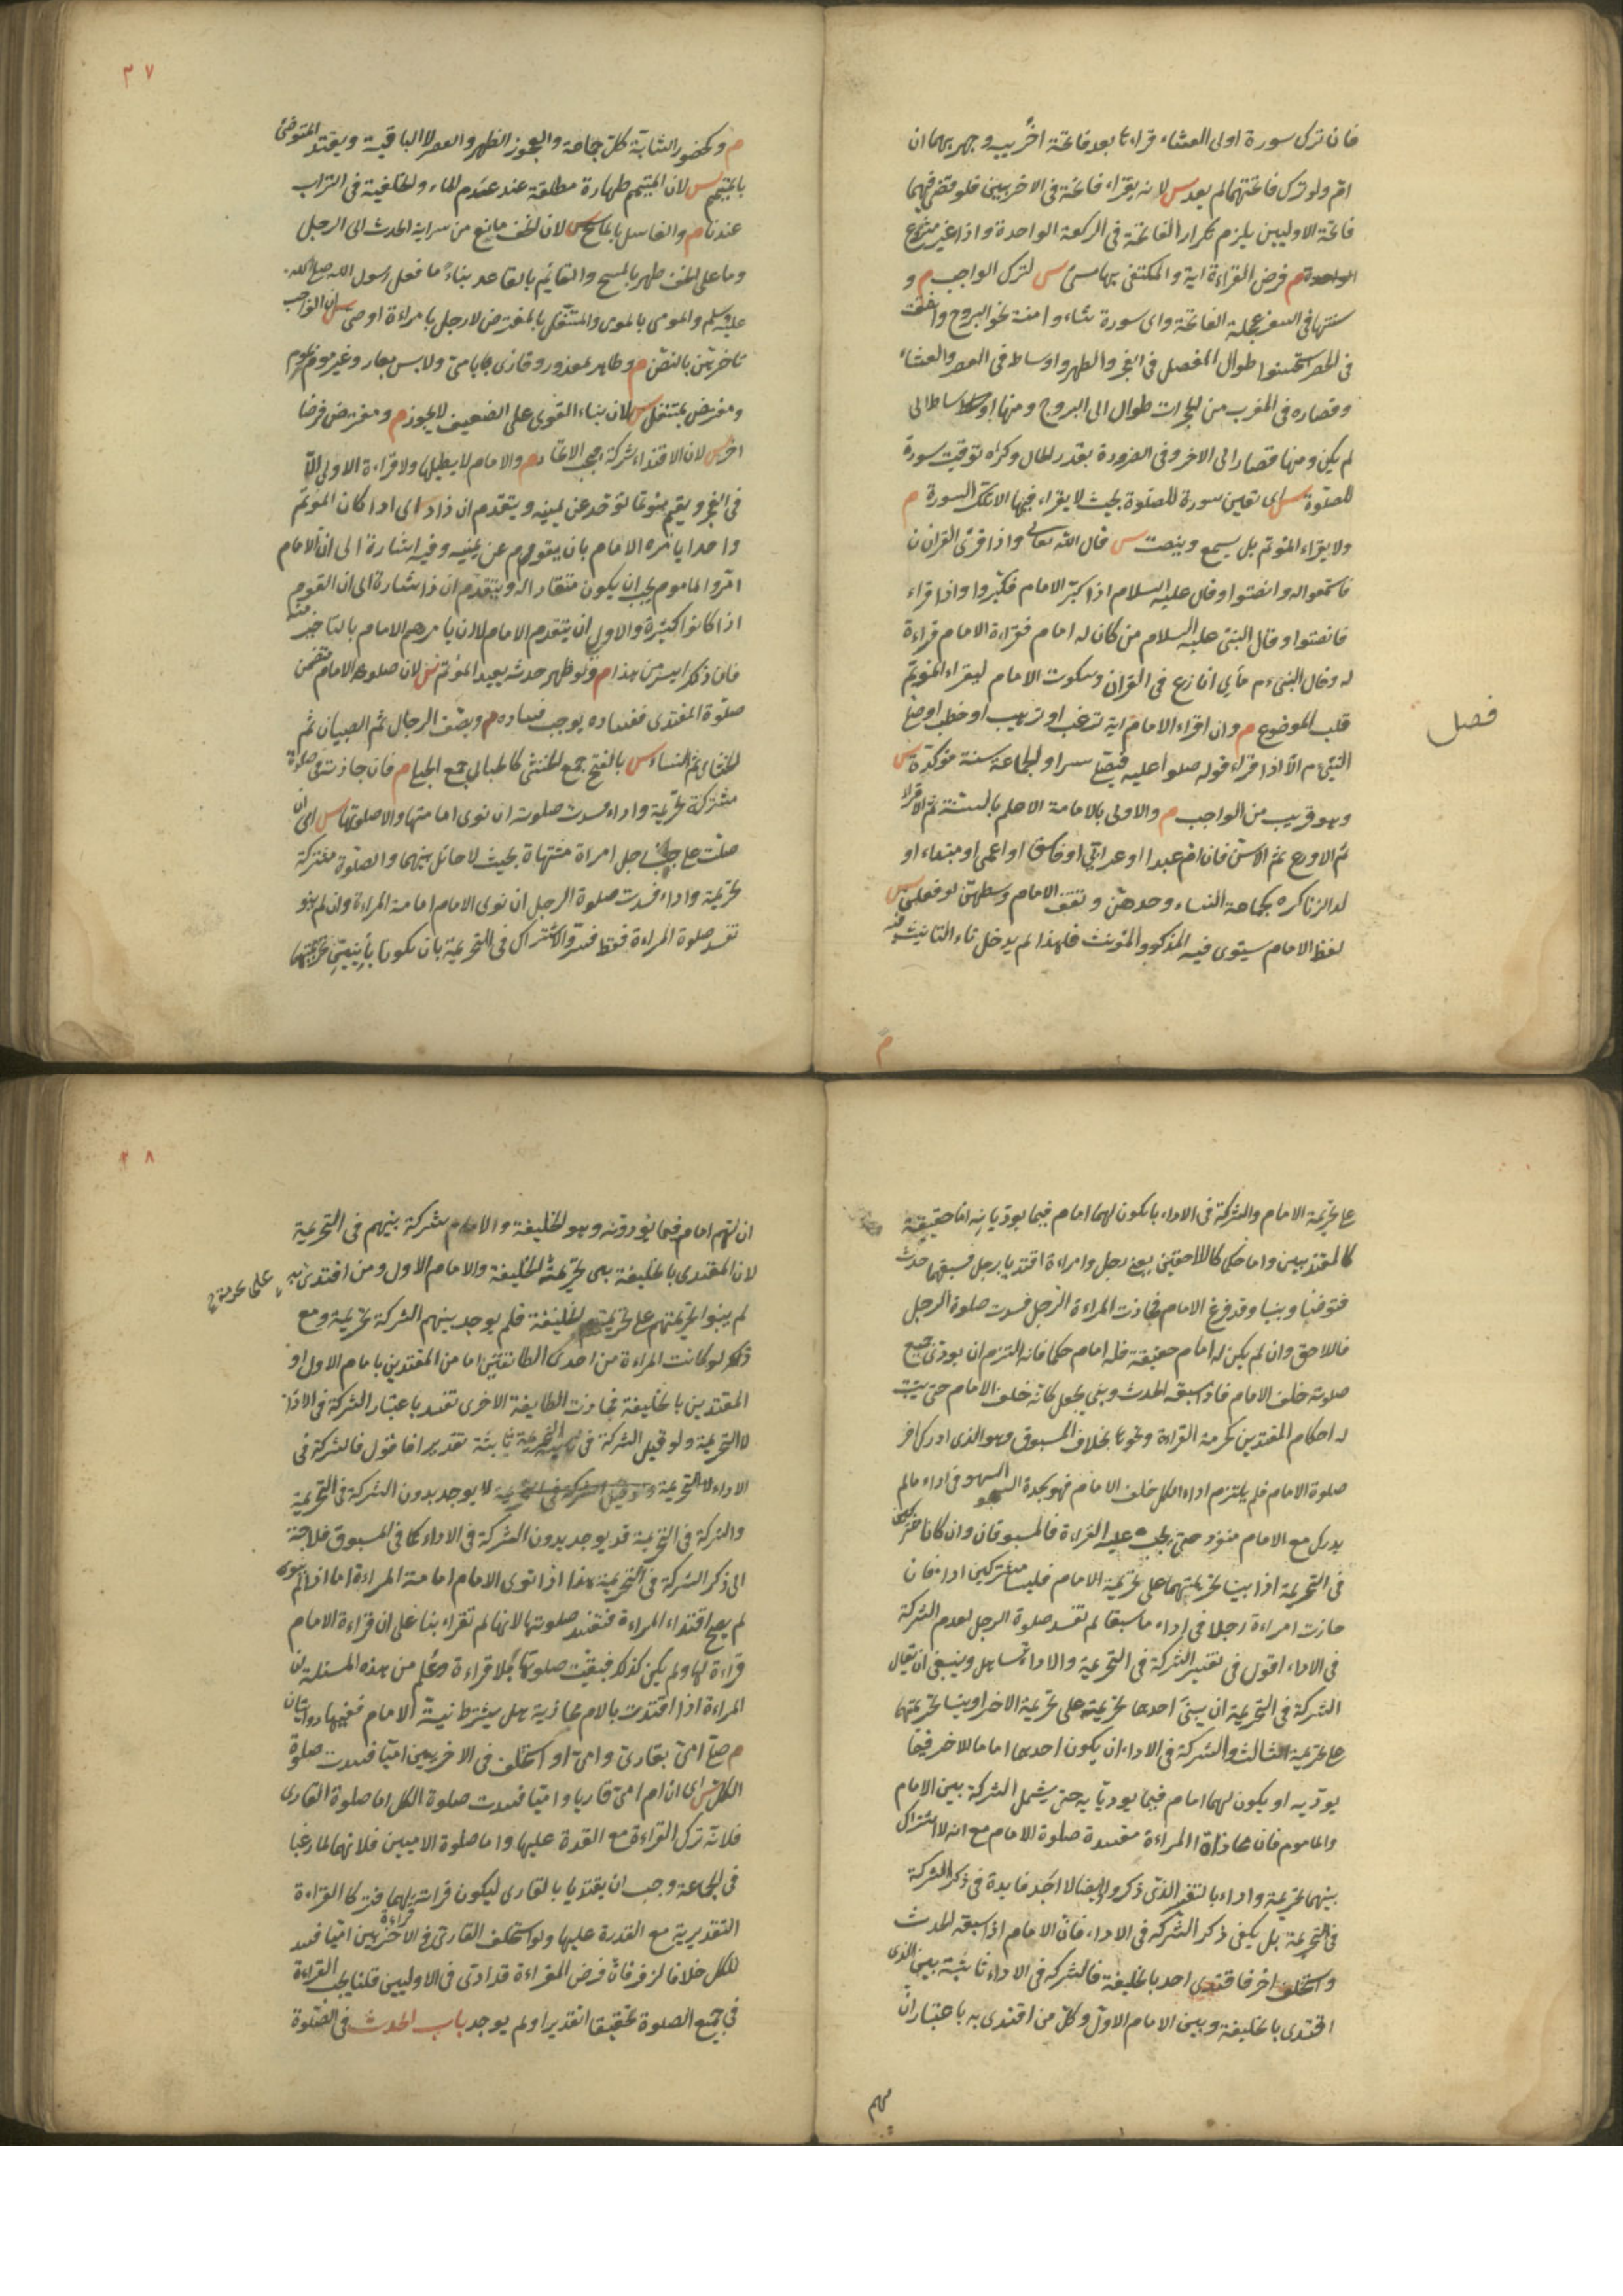 فان ترك سورة اولى العشاء قراءتا بعد فاتحة اخرييه وجهر بهما ان
ام ولو ترك فاتحتهما لم يعد س لانه يقراء فاتحة فى الاخريين فلو قضى فيهما
فاتحة الاوليين يلزم تكرار الفاتحة فى الركعة الواحدة وذا غير مشروع
م فرض القراءة اية والمكتفى بها مسئ س لترك الواجب م و
سنتها فى السفر عجلة الفاتحة واى سورة شاء وامنة نحو البروج وانشقت
فى الحضر استحسنوا طوال المفصل فى الفجر والظهر واوساط فى العصر والعشاء
وقصاره فى المغرب من الحجرات طوال الى البروج ومنها اوساط الى
لم يكن ومنها قصار الى الاخر وفى الضرورة بقدر الحال وكره توقيت سورة
للصلوة س اى تعيين سورة للصلوة بحيث لا يقراء فيها الا تلك السورة م
ولا يقراء المؤتم بل يسمع وينصت س قال الله تعالى واذا قرئ القران
فاستمعوا له وانصتوا وقال عليه السلام اذا كبر الامام فكبروا واذا قراء
فانصتوا وقال النبى عليه السلام من كان له امام فقراءة الامام قراءة
له وقال النبى م مالى انازع فى القران وسكوت الامام ليقراء المؤتم
قلب الموضوع م وان اقراء الامام اية ترغيب او ترهيب او خطب او صلى
النبى م الا اذا قراء قوله صلوا عليه فيصلى سرا والجماعة سنة مؤكدة س
وهو قريب من الواجب م والاولى بالامامة الاعلم بالسنة ثم الاقراء
ثم الاورع ثم الاسن فان ام عبدا او عرابى او فاسق او اعمى او مبتدع او
لد الزنا كره كجماعة النساء وحدهن وتقف الامام وسطهن لو فعلن س
لفظ الامام يستوى فيه المذكر والمؤنث فلهذا لم يدخل تاء التانيث فيه
فصل
م
٣٧
م وكحضور الشابة كل جماعة والعجوز الظهر والعصر لا الباقية ويقتدى المتوضئ
بالمتيمم س لان التيمم طهارة مطلقة عند عدم الماء والخلفية فى التراب
عندنا م والغاسل بالماسح س لان الخف مانع من سراية الحدث الى الرجل
وما على الخف طهر بالمسح والقائم بالقاعد بناء ما فعل رسول الله صلى الله
عليه وسلم والمومى بالمومى والمتنفل بالمفترض لا رجل بامراءة او صبى س لان الواجب
تاخرهن بالنص م وطاهر بمعذور وقارى بامى ولابس بعار وغير موم بموم
ومفترض بمتنفل س لان بناء القوى على الضعيف لا يجوز م ومفترض فرضا
اخر س لان الاقتداء شركة يجب الاتحاد م والامام لا يطيلها ولا قراءة الاولى الا
فى الفجر ويقيم مؤتما توحد عن يمينه ويتقدم ان زاد س اى اذا كان المؤتم
واحدا يامره الامام بان يقوم عن يمينه وفيه اشارة الى ان الامام
امر والماموم يجب ان يكون منقادا له ويتقدم ان زاد اشارة الى ان القوم
اذا كانوا كثيرة والاولى ان يتقدم الامام لا ان يامرهم الامام بالتاخير عنه
فان ذكر ايسر من هذا م ولو ظهر حدثه يعيد المؤتم س لان صلوة الامام تتضمن
صلوة المقتدى ففساده يوجب فساده م ويصف الرجال ثم الصبيان ثم
الخناثى ثم النساء س بالفتح جمع الخنثى كالحبالى جمع الحبلى م فان حاذته فى صلوة
مشتركة تحريمة واداء فسدت صلوته ان نوى امامتها والا صلوتها س اى ان
صلت على جنب رجل امراة مشتهاة بحيث لا حائل بينهما والصلوة مشتركة
تحريمة واداء فسدت صلوة الرجل ان نوى الامام امامة المراءة وان لم ينو
تفسد صلوة المراءة فقط فسر والاشتراك فى التحريمة بان يكونا بانيين تحريمتهما
على تحريمة الامام والشركة فى الاداء بان يكون لهما امام فيما يوديانه اما حقيقة
كالمقتديين واما حكما كاللاحقين يعنى رجل وامراءة اقتديا برجل فسبقهما حدث
فتوضيا وبنيا وقد فرغ الامام فحاذت المراءة الرجل فسدت صلوة الرجل
فاللاحق وان لم يكن له امام حقيقة فله امام حكما فانه التزم ان يودى جميع
صلوته خلف الامام فاذا سبقه الحدث وبنى يجعل كانه خلف الامام حتى يثبت
له احكام المقتدين كحرمة القراءة ونحوها بخلاف المسبوق وهو الذى ادرك اخر
صلوة الامام فلم يلتزم اداء الكل خلف الامام فهو يسجد السهو فى اداء ما لم
يدرك مع الامام منفرد حتى يجب عليه القراءة فالمسبوقان وان كانا مشتركين
فى التحريمة اذا بنيا تحريمتهما على تحريمة الامام فليسا مشتركين اداء فان
حاذت امراءة رجلا فى اداء ما سبقا لم تفسد صلوة الرجل لعدم الشركة
فى الاداء اقول فى تفسير الشركة فى التحريمة والاداء تساهل وينبغى ان يقال
الشركة فى التحريمة ان يبنى احدهما تحريمته على تحريمة الاخر او بنيا تحريمتهما
على تحريمة الثالث والشركة فى الاداء ان يكون احدهما اماما للاخر فيما
يوديه او يكون لهما امام فيما يوديانه حتى يشمل الشركة بين الامام
والماموم فان محاذاة المراءة مفسدة صلوة الامام مع انه لا اشتراك
بينهما تحريمة واداء بالتفسير الذى ذكروا وايضا لا اجد فايدة فى ذكر الشركة
فى التحريمة بل يكفى ذكر الشركة فى الاداء فان الامام اذا سبقه الحدث
واستخلف اخر فاقتدى احد بالخليفة فالشركة فى الاداء ثابتة بين الذى
اقتدى بالخليفة وبين الامام الاول وكل من اقتدى به باعتبار ان
٣٨
ان لهم امام فيما يودونه وهو الخليفة والامام شركة بينهم فى التحريمة
لان المقتدى بالخليفة بنى تحريمته الخليفة والامام الاول ومن اقتدى به
لم يبنوا تحريمتهم على تحريمة الخليفة فلم يوجد بينهم الشركة تحريمة ومع
ذلك لو كانت المراءة من احدى الطائفتين اما من المقتدين بامام الاول او
المقتدين بالخليفة فحاذت الطايفة الاخرى تفسد باعتبار الشركة فى الاداء
لا التحريمة ولو قيل الشركة فى التحريمة ثابتة تقديرا فاقول فالشركة فى
الاداء لا يوجد بدون الشركة فى التحريمة
والشركة فى التحريمة قد يوجد بدون الشركة فى الاداء كما فى المسبوق فلا حاجة
الى ذكر الشركة فى التحريمة هذا اذا نوى الامام امامة المراءة اما اذا لم ينوى
لم يصح اقتداء المراءة فتفسد صلوتها لانها لم تقراء بنا على ان قراءة الامام
قراءة لها ولم يكن كذلك فبقيت صلوتها بلا قراءة وعلم من هذه المسئلة ان
المراءة اذا اقتدت بالامام محاذية هل يشترط نية الامام ففيها روايتان
م صلى امى بقارئ وامى او استخلف فى الاخريين اميا فسدت صلوة
الكل س اى ان ام امى قاريا واميا فسدت صلوة الكل اما صلوة القارى
فلانه ترك القراءة مع القدرة عليها واما صلوة الاميين فلانهما لما رغبا
فى الجماعة وجب ان يقتديا بالقارى ليكون قراءته لهما فتركا القراءة
التقديرية مع القدرة عليها ولو استخلف القارئ فى الاخريين اميا فسد
للكل خلافا لزفر فان فرض القراءة قد ادى فى الاوليين قلنا يجب القراءة
فى جميع الصلوة تحقيقا او تقديرا ولم يوجد باب الحدث فى الصلوة